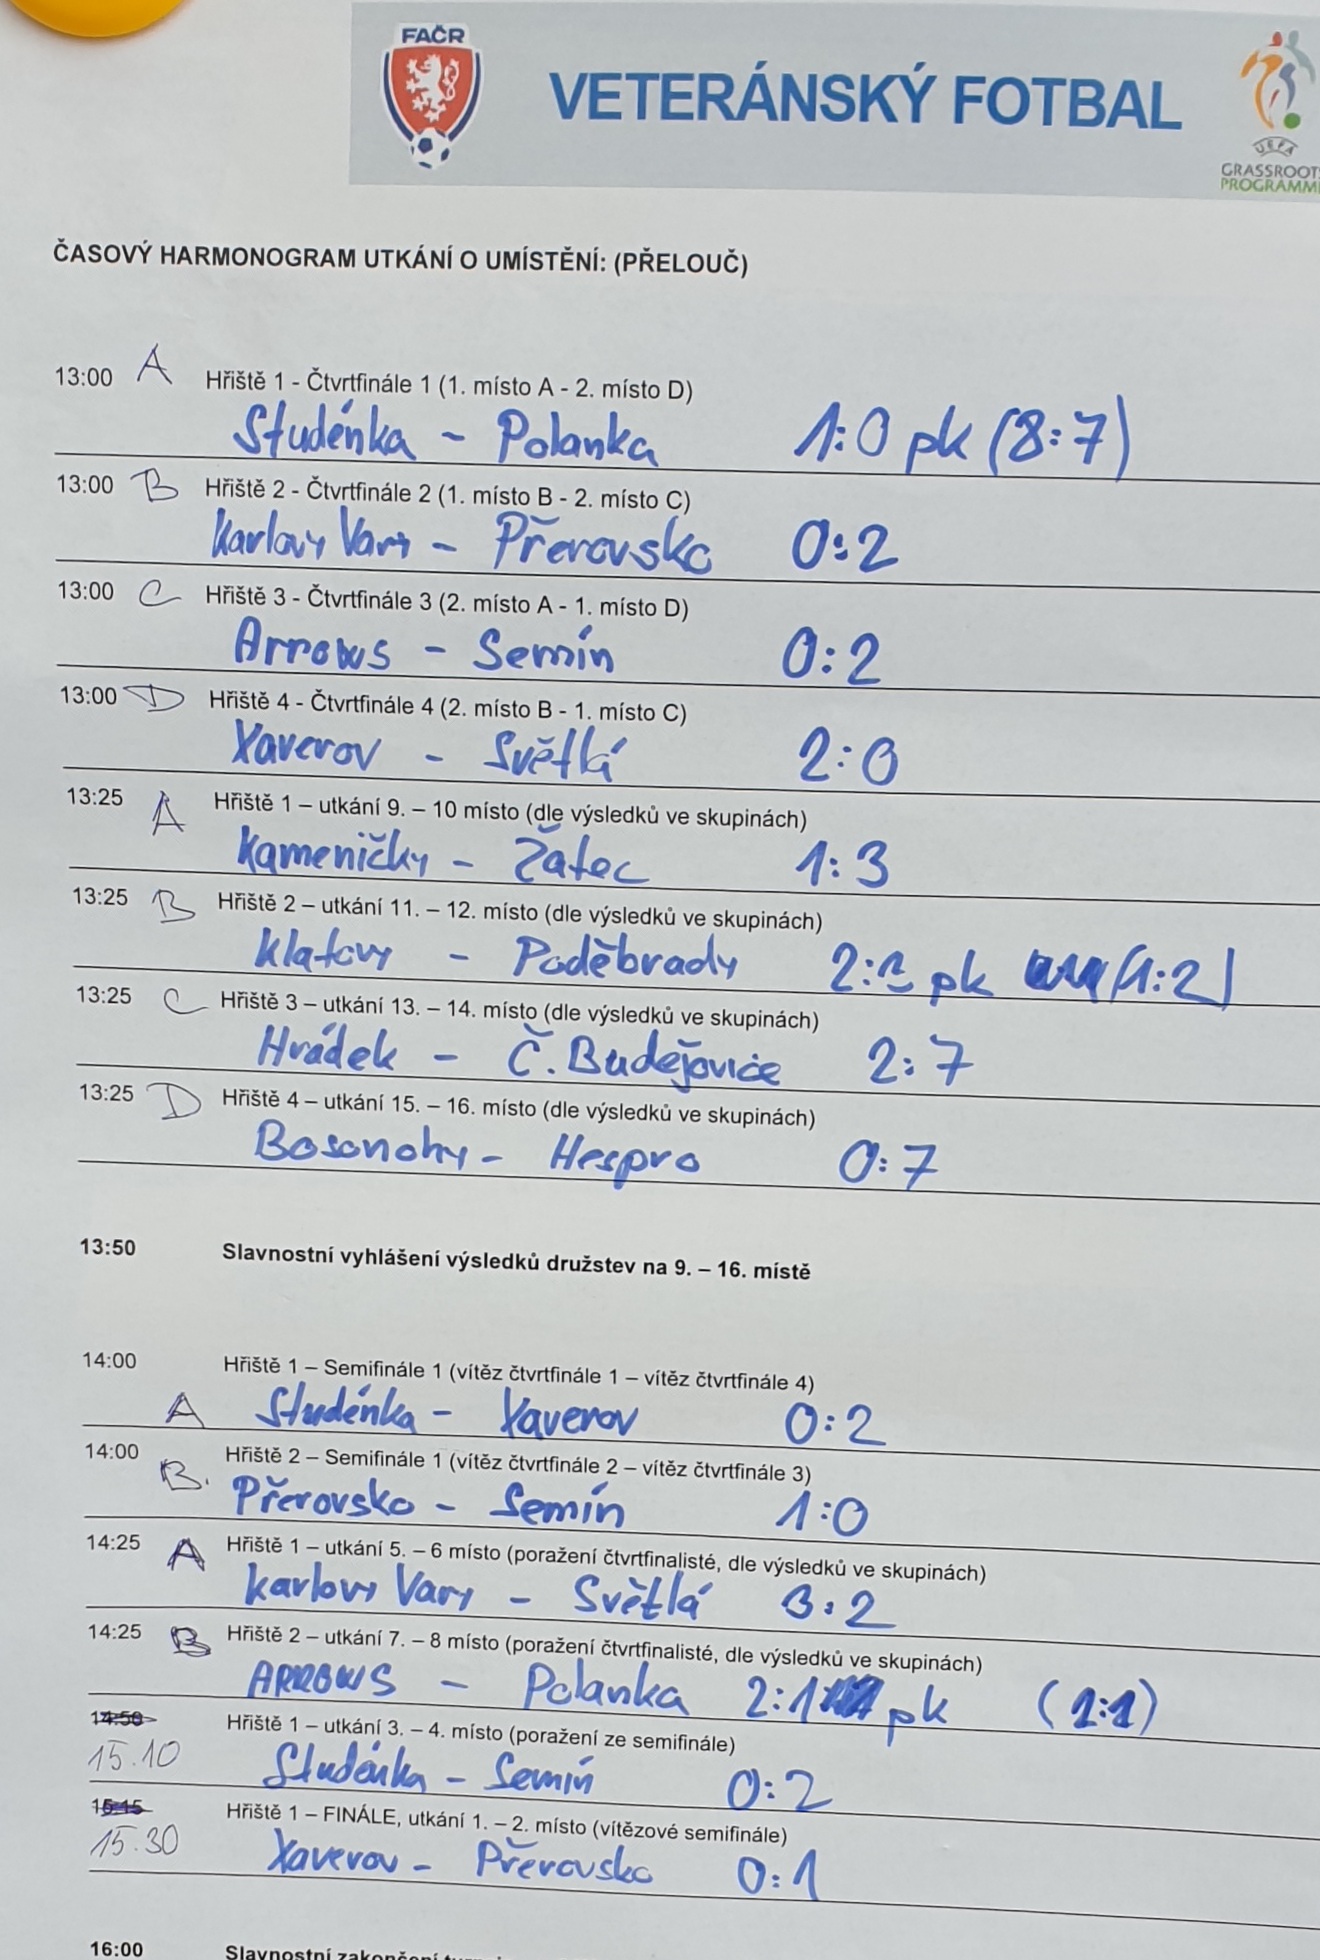 FAČR
VETERÁNSKÝ FOTBAL
UEFA
GRASSROOTS
PROGRAMME
ČASOVÝ HARMONOGRAM UTKÁNÍ O UMÍSTĚNÍ: (PŘELOUČ)
13:00 A Hřiště 1 - Čtvrtfinále 1 (1. místo A - 2. místo D)
Studénka - Polanka 1:0 pk (8:7)
13:00 B Hřiště 2 - Čtvrtfinále 2 (1. místo B - 2. místo C)
Karlovy Vary - Přerovsko 0:2
13:00 C Hřiště 3 - Čtvrtfinále 3 (2. místo A - 1. místo D)
Arrows - Semín 0:2
13:00 D Hřiště 4 - Čtvrtfinále 4 (2. místo B - 1. místo C)
Xaverov - Světlá 2:0
13:25 A Hřiště 1 – utkání 9. – 10 místo (dle výsledků ve skupinách)
Kameničky - Žatec 1:3
13:25 B Hřiště 2 – utkání 11. – 12. místo (dle výsledků ve skupinách)
Klatovy - Poděbrady pk (1:2)
13:25 C Hřiště 3 – utkání 13. – 14. místo (dle výsledků ve skupinách)
Hrádek - Č. Budějovice 2:7
13:25 D Hřiště 4 – utkání 15. – 16. místo (dle výsledků ve skupinách)
Bosonohy - Hespro 0:7
13:50 Slavnostní vyhlášení výsledků družstev na 9. – 16. místě
14:00 Hřiště 1 – Semifinále 1 (vítěz čtvrtfinále 1 – vítěz čtvrtfinále 4)
A Studénka - Xaverov 0:2
14:00 Hřiště 2 – Semifinále 1 (vítěz čtvrtfinále 2 – vítěz čtvrtfinále 3)
B. Přerovsko - Semín 1:0
14:25 A Hřiště 1 – utkání 5. – 6 místo (poražení čtvrtfinalisté, dle výsledků ve skupinách)
Karlovy Vary - Světlá 3:2
14:25 B Hřiště 2 – utkání 7. – 8 místo (poražení čtvrtfinalisté, dle výsledků ve skupinách)
ARROWS - Polanka 2:1 pk (1:1)
14:50 Hřiště 1 – utkání 3. – 4. místo (poražení ze semifinále)
15.10 Studénka - Semín 0:2
15:15 Hřiště 1 – FINÁLE, utkání 1. – 2. místo (vítězové semifinále)
15.30 Xaverov - Přerovsko 0:1
16:00 Slavnostní zakončení